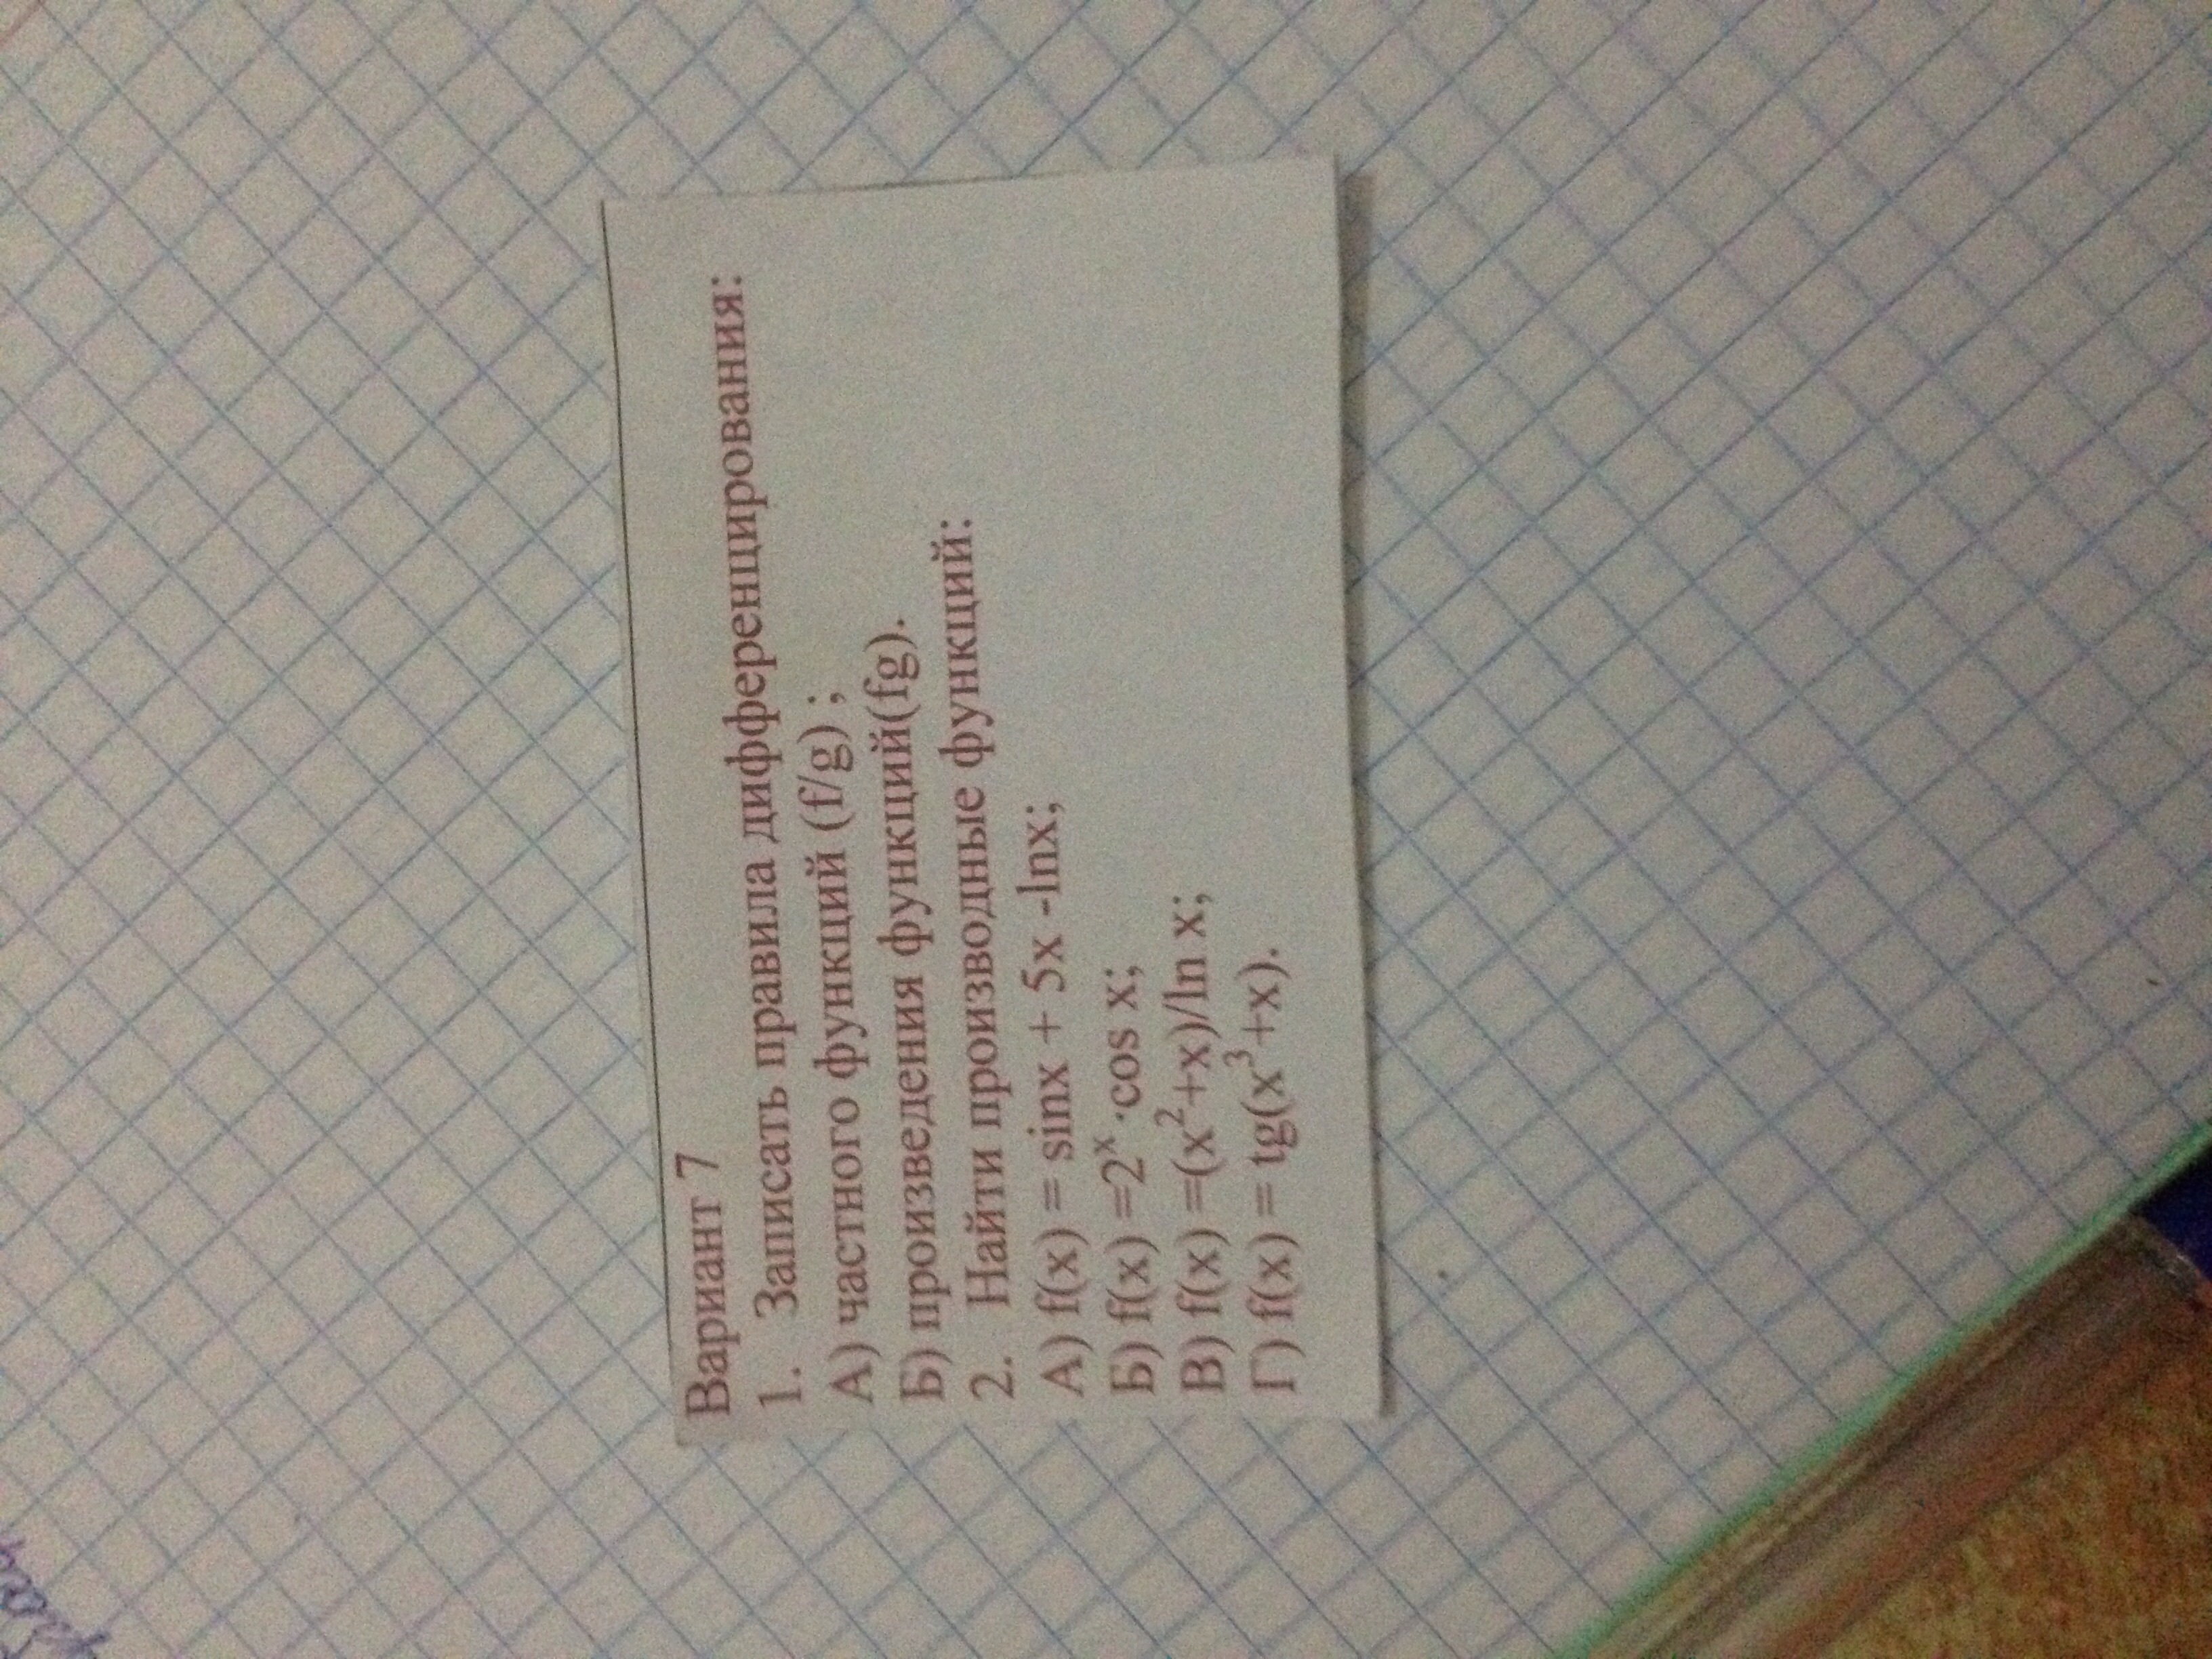 Вариант 7
1. Записать правила дифференцирования:
А) частного функций (f/g) ;
Б) произведения функций(fg).
2. Найти производные функций:
А) f(x) = sinx + 5x -lnx;
Б) f(x) =2ˣ ·cos x;
В) f(x) =(x²+x)/ln x;
Г) f(x) = tg(x³+x).